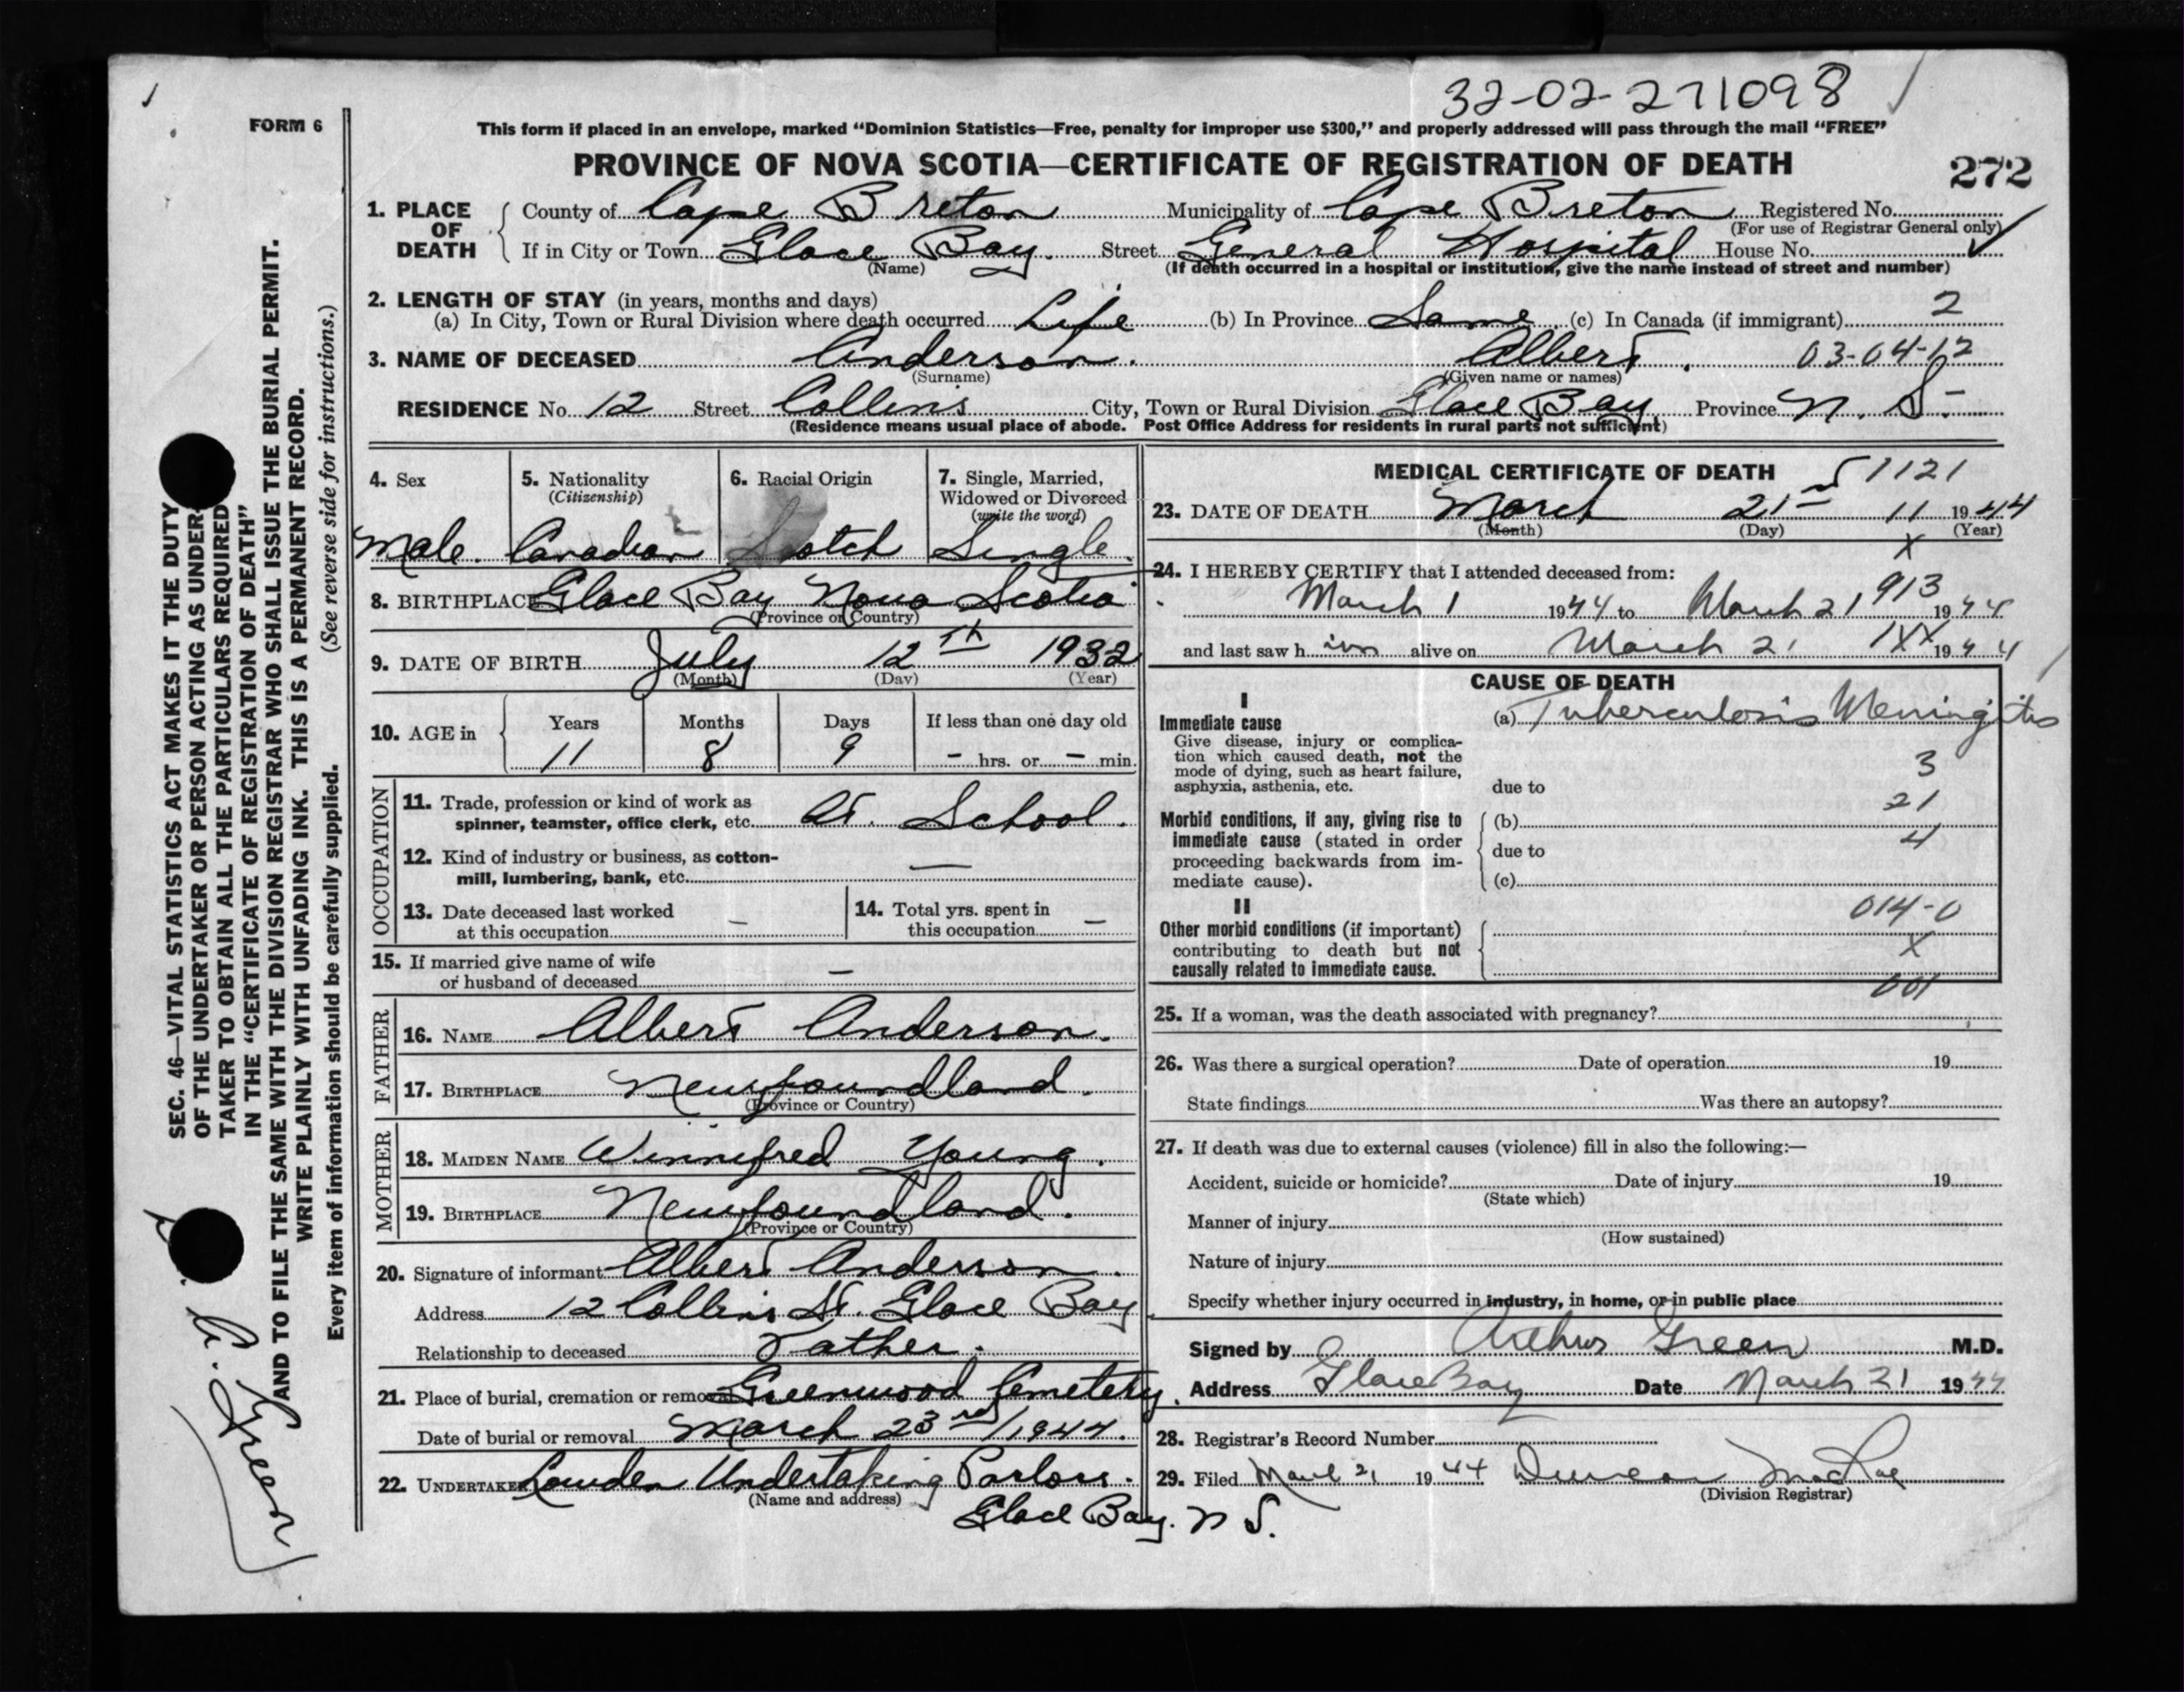 32-02-271098
FORM 6
This form if placed in an envelope, marked "Dominion Statistics—Free, penalty for improper use $300," and properly addressed will pass through the mail "FREE"
PROVINCE OF NOVA SCOTIA—CERTIFICATE OF REGISTRATION OF DEATH
272
1. PLACE OF DEATH
County of Cape Breton Municipality of Cape Breton Registered No.
(For use of Registrar General only)
If in City or Town Glace Bay. Street General Hospital House No.
(Name) (If death occurred in a hospital or institution, give the name instead of street and number)
2. LENGTH OF STAY (in years, months and days)
(a) In City, Town or Rural Division where death occurred Life (b) In Province Same (c) In Canada (if immigrant) 2
3. NAME OF DECEASED Anderson. Albert. 03-04-12
(Surname) (Given name or names)
RESIDENCE No. 12 Street Collins City, Town or Rural Division Glace Bay Province N. S.
(Residence means usual place of abode. Post Office Address for residents in rural parts not sufficient)
4. Sex
Male.
5. Nationality
(Citizenship)
Canadian
6. Racial Origin
Scotch
7. Single, Married,
Widowed or Divorced
(write the word)
Single.
8. BIRTHPLACE Glace Bay Nova Scotia
(Province or Country)
9. DATE OF BIRTH July 12th 1932
(Month) (Day) (Year)
10. AGE in
Years Months Days If less than one day old
11 8 9 – hrs. or – min.
OCCUPATION
11. Trade, profession or kind of work as
spinner, teamster, office clerk, etc. At. School.
12. Kind of industry or business, as cotton-
mill, lumbering, bank, etc. —
13. Date deceased last worked
at this occupation –
14. Total yrs. spent in
this occupation –
15. If married give name of wife
or husband of deceased –
FATHER
16. NAME Albert Anderson.
17. BIRTHPLACE Newfoundland.
(Province or Country)
MOTHER
18. MAIDEN NAME Winnifred Young.
19. BIRTHPLACE Newfoundland.
(Province or Country)
20. Signature of informant Albert Anderson.
Address 12 Collins St. Glace Bay.
Relationship to deceased Father.
21. Place of burial, cremation or removal Greenwood Cemetery.
Date of burial or removal March 23rd/1944.
22. UNDERTAKER Lowden Undertaking Parlors.
(Name and address)
Glace Bay. N S.
MEDICAL CERTIFICATE OF DEATH
1121
23. DATE OF DEATH March 21st 11 1944
(Month) (Day) (Year)
X
24. I HEREBY CERTIFY that I attended deceased from:
March 1 1944 to March 21 913 1944
and last saw him alive on March 21 1XX 1944
CAUSE OF DEATH
I
Immediate cause
Give disease, injury or complica-
tion which caused death, not the
mode of dying, such as heart failure,
asphyxia, asthenia, etc.
(a) Tuberculosis Meningitis
3
due to
21
Morbid conditions, if any, giving rise to
immediate cause (stated in order
proceeding backwards from im-
mediate cause).
(b)
4
due to
(c)
II
014-0
Other morbid conditions (if important)
contributing to death but not
causally related to immediate cause.
X
001
25. If a woman, was the death associated with pregnancy?
26. Was there a surgical operation? Date of operation 19
State findings Was there an autopsy?
27. If death was due to external causes (violence) fill in also the following:—
Accident, suicide or homicide? Date of injury 19
(State which)
Manner of injury
(How sustained)
Nature of injury
Specify whether injury occurred in industry, in home, or in public place
Signed by Arthur Green M.D.
Address Glace Bay Date March 21 1944
28. Registrar's Record Number
29. Filed March 21 1944 Duncan MacRae
(Division Registrar)
SEC. 46—VITAL STATISTICS ACT MAKES IT THE DUTY
OF THE UNDERTAKER OR PERSON ACTING AS UNDER-
TAKER TO OBTAIN ALL THE PARTICULARS REQUIRED
IN THE "CERTIFICATE OF REGISTRATION OF DEATH"
AND TO FILE THE SAME WITH THE DIVISION REGISTRAR WHO SHALL ISSUE THE BURIAL PERMIT.
WRITE PLAINLY WITH UNFADING INK. THIS IS A PERMANENT RECORD.
Every item of information should be carefully supplied. (See reverse side for instructions.)
A. Green